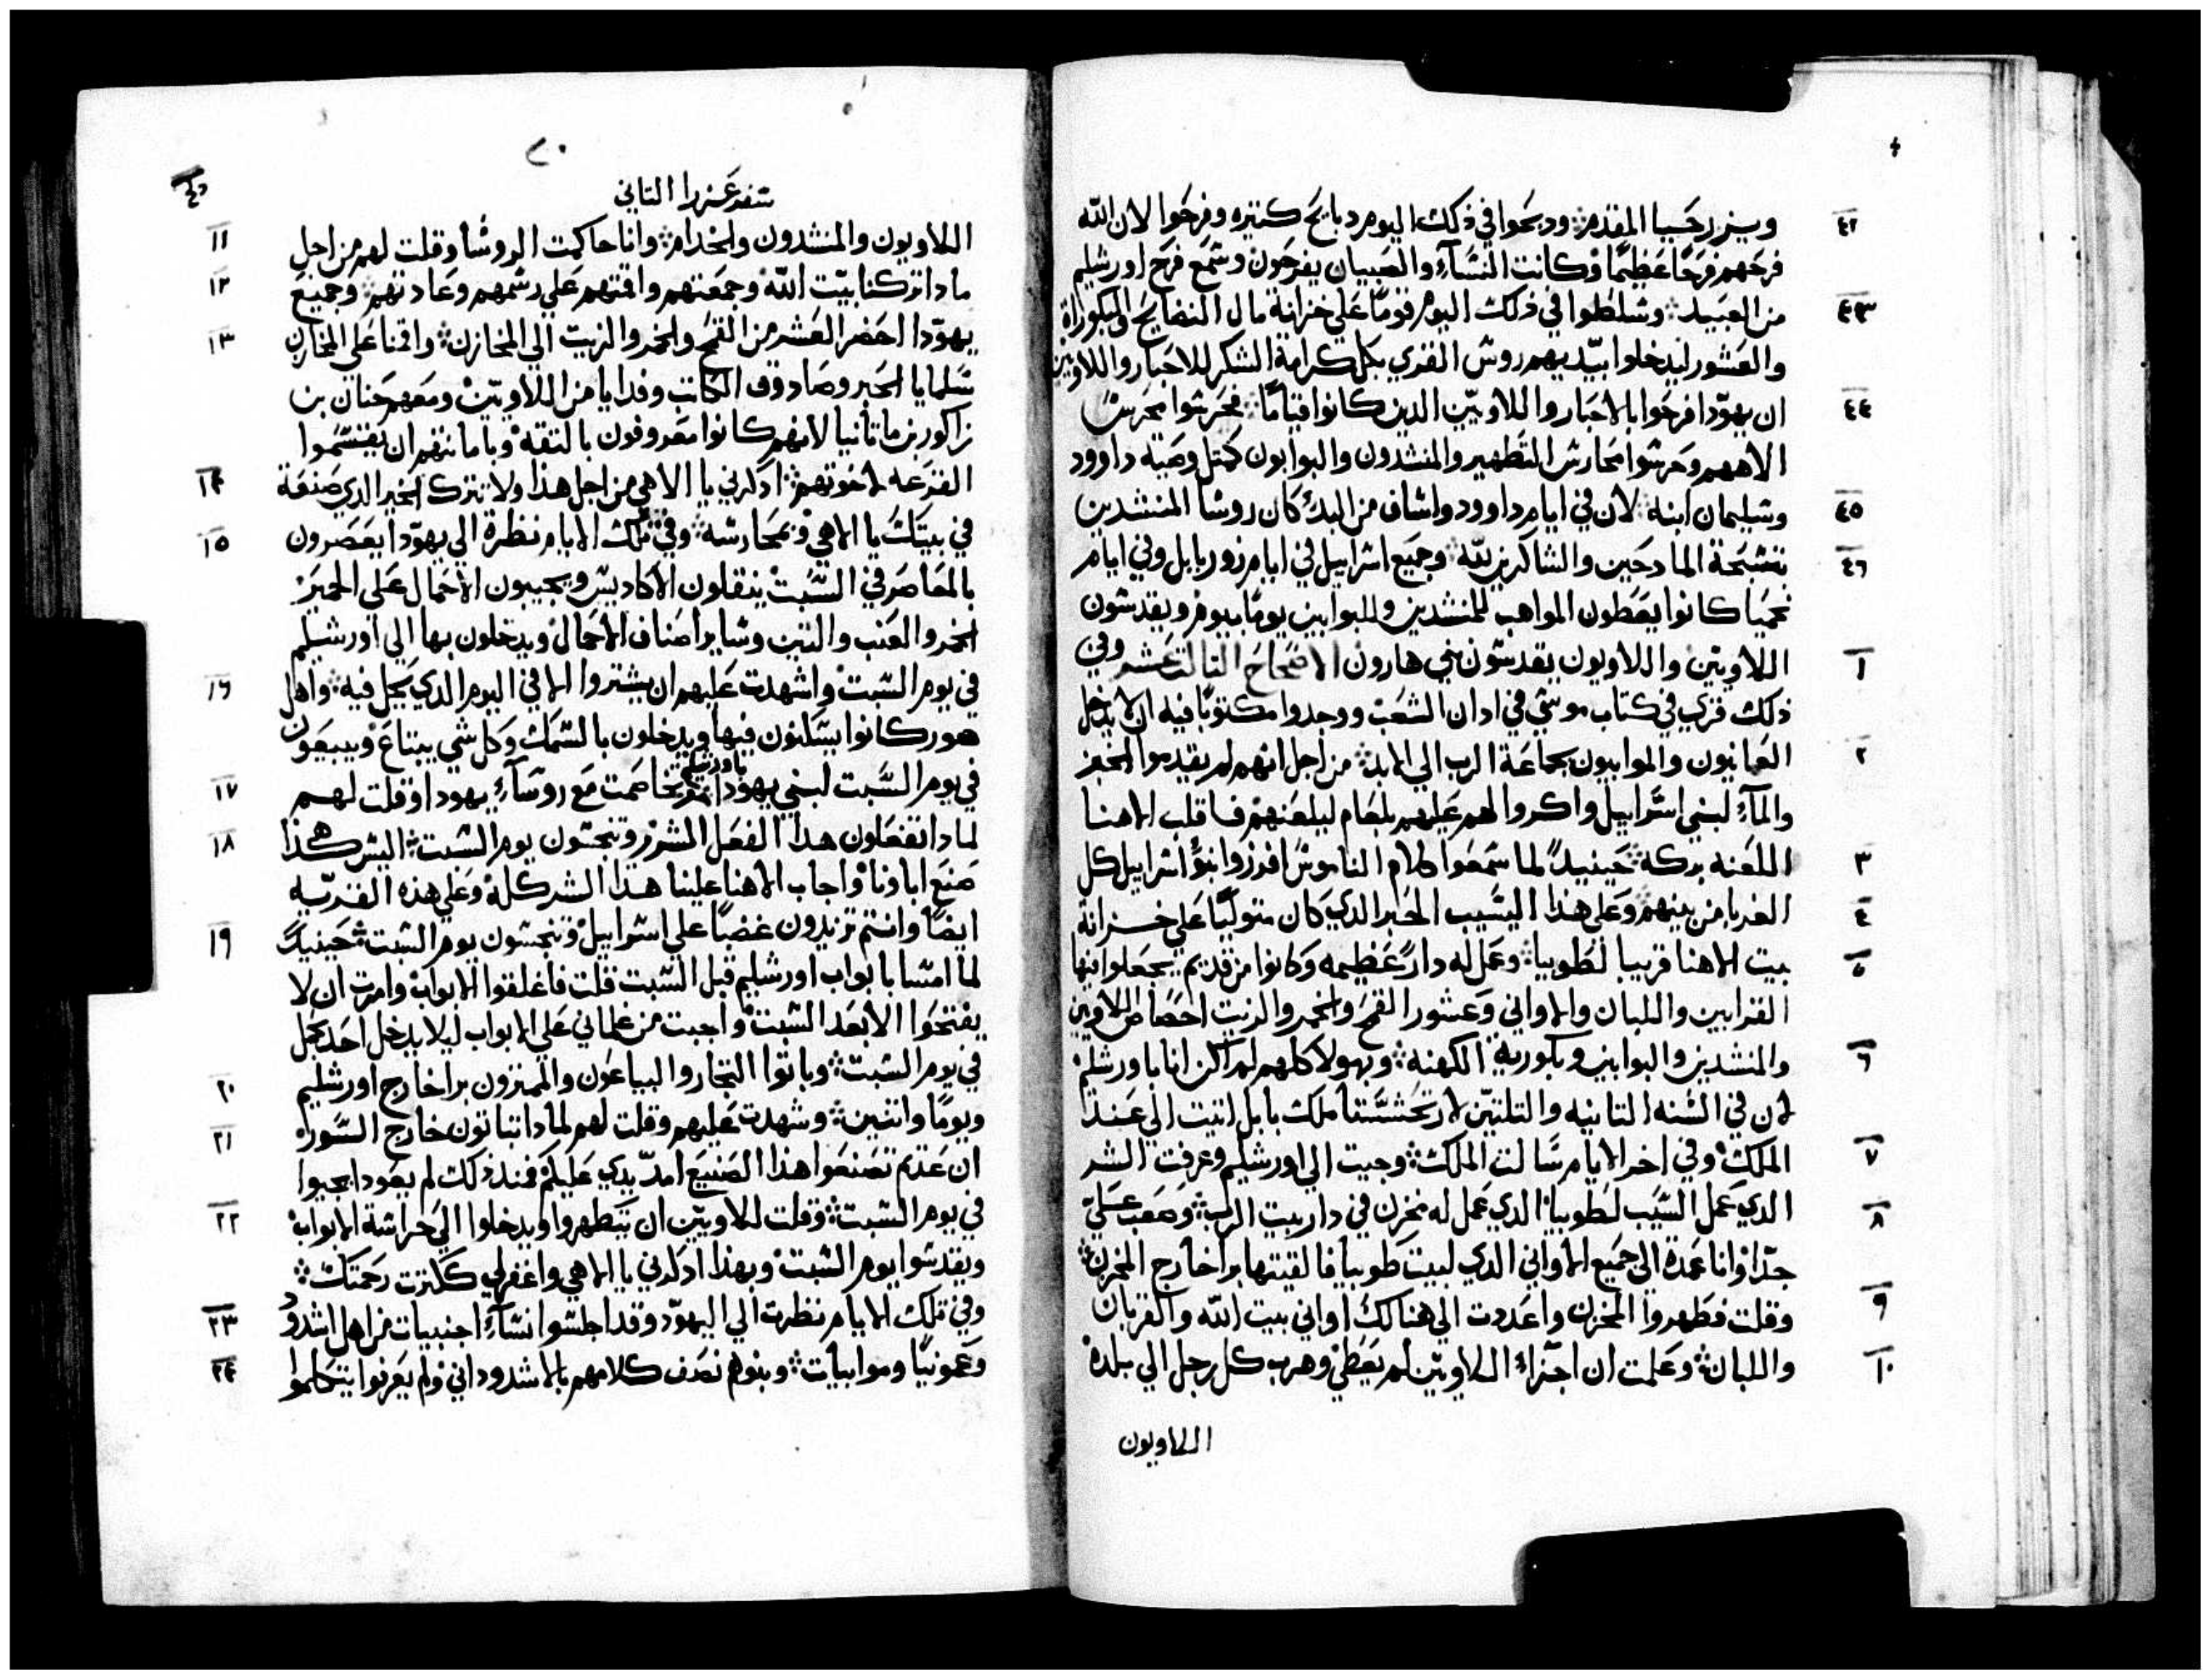 ٤٢ ويزرحيا المقدم ودبحوا في ذلك اليوم دبايح كتيره وفرحوا لان الله
فرحهم فرحًا عظيمًا وكانت النسآء والصبيان يفرحون وسمع فرح اورشليم
٤٣ من العبيد وسلطوا في ذلك اليوم قومًا علي خزانة مال النضايح والبكوراة
والعشور ليدخلوا بيديهم روش القري بكل كرامة الشكر للاحبار واللاويين
٤٤ ان يهودا فرحوا بالاحبار واللاويين الدين كانوا قيامًا فحرسوا محرس
الاههم وحرسوا محارس التطهير والمنشدون والبوابون كمتل وصية داوود
٤٥ وسليمان ابنه لان في ايام داوود واساف من البدء كان روسا المنشدين
٤٦ تسبحة المادحين والشاكرين لله وجميع اسراييل في ايام زوربابل وفي ايام
نحميا كانوا يعطون المواهب للمنشدين وللبوابين يومًا بيوم ويقدسون
١ اللاويين واللاويون يقدسون بني هارون الاصحاح التالت عشر وفي
ذلك قري في كتاب موسي في ادان الشعب ووجدوا مكتوبًا فيه ان لا يدخل
٢ العمانيون والموابيون بجماعة الرب الي الابد من اجل انهم لم يقدموا الخبز
والمآء لبني اسراييل واكروا لهم عليهم بلعام ليلعنهم فاقلب الاهنا
٣ اللعنه بركه حينيدٍ لما سمعوا كلام الناموس افرزوا بنو اسراييل كل
٤ الغربا من بينهم وعلي هذا اليسيب الحبر الدي كان متوليًا علي خزانة
٥ بيت الاهنا قريبا لطوبيا وعمل له دارً عظيمه وكانوا من قديم يجعلوا فيها
القرابين واللبان والاواني وعشور القمح والخمر والزيت احصاص اللاويين
٦ والمنشدين والبوابين وبكورية الكهنه وبهولا كلهم لم اكن انا باورشليم
لان في السنه التانيه والتلتين لارتحشستا ملك بابل اتيت الي عند
٧ الملك وفي اخر الايام سالت الملك وجيت الي اورشليم وعرفت الشر
٨ الدي عمل السيب لطوبيا الدي عمل له مخزن في دار بيت الرب وصعب علي
جدًا وانا عمدة الي جميع الاواني الدي لبيت طوبيا فالقيتها برا خارج المخزن
٩ وقلت فطهروا المخزن واعددت الي هنالك اواني بيت الله والقربان
١٠ واللبان وعلمت ان اجزاء اللاويين لم يعطي وهرب كل رجل الي بلده
اللاويون
٢٠
سفر عزرا التاني
١١ اللاويون والمنشدون والخدام وانا حاكمت الروسا وقلت لهم من اجل
١٢ مادا تركنا بيت الله وجمعتهم واقمتهم علي رسمهم وعادتهم وجميع
١٣ يهودا احضر العشر من القمح والخمر والزيت الي المخازن واقمنا علي المخازن
سلمايا الحبر وصادوق الكاتب وفدايا من اللاويين ومعهم حنان بن
زاكور بن ماتانيا لانهم كانوا معروفون بالتقه وبامانتهم ان يقتسموا
١٤ القرعه لاخوتهم ادكرني يا الاهي من اجل هذا ولا تترك الخير الدي صنعة
١٥ في بيتك يا الاهي وبمحارسه وفي تلك الايام نظرة الي يهودا يعصرون
بالمعاصر في السبت ينقلون الاكاديس ويجيبون الاحمال علي الحمير
الخمر والعنب والتين وساير اصناف الاحمال ويدخلون بها الي اورشليم
١٦ في يوم السبت واشهدت عليهم ان يشتروا الا في اليوم الدي يحل فيه واهل
صور كانوا يسكنون فيها ويدخلون بالسمك وكل شي يبتاع ويبيعون
١٧ في يوم السبت لبني يهودا باورشليم تخاصمت مع روسآء يهودا وقلت لهم
١٨ لمادا تفعلون هدا الفعل المشرر وتنجسون يوم السبت اليس هكذا
صنع اباونا واجاب الاهنا علينا هذا الشر كله وعلي هذه القريه
١٩ ايضًا وانتم تزيدون غضبًا علي اسراييل وتنجسون يوم السبت حينيدٍ
لما امسا بابواب اورشليم قبل السبت قلت فاغلقوا الابواب وامرت ان لا
يفتحوا الا بعد السبت واجبت من غلماني علي الابواب ليلا يدخل احد بحمل
٢٠ في يوم السبت وباتوا التجار والبياعون والممتزون برا خارج اورشليم
٢١ ويومًا واتنين وشهدت عليهم وقلت لهم لمادا تباتون خارج السور
ان عدتم تصنعوا هذا الصنيع امد يدي عليكم فمند ذلك لم يعودا يجيوا
٢٢ في يوم السبت وقلت للاويين ان يتطهروا ويدخلوا الي حراسة الابواب
ويقدسوا يوم السبت وبهذا ادكرني يا الاهي واغفر لي ككترت رحمتك
٢٣ وفي تلك الايام نظرت الي اليهود وقد اجلسوا نسآء اجنبيات من اهل اشدود
٢٤ وعمونيًا وموابيات وبنوهم نصف كلامهم بالاشدوداني ولم يعرفوا يتكلموا